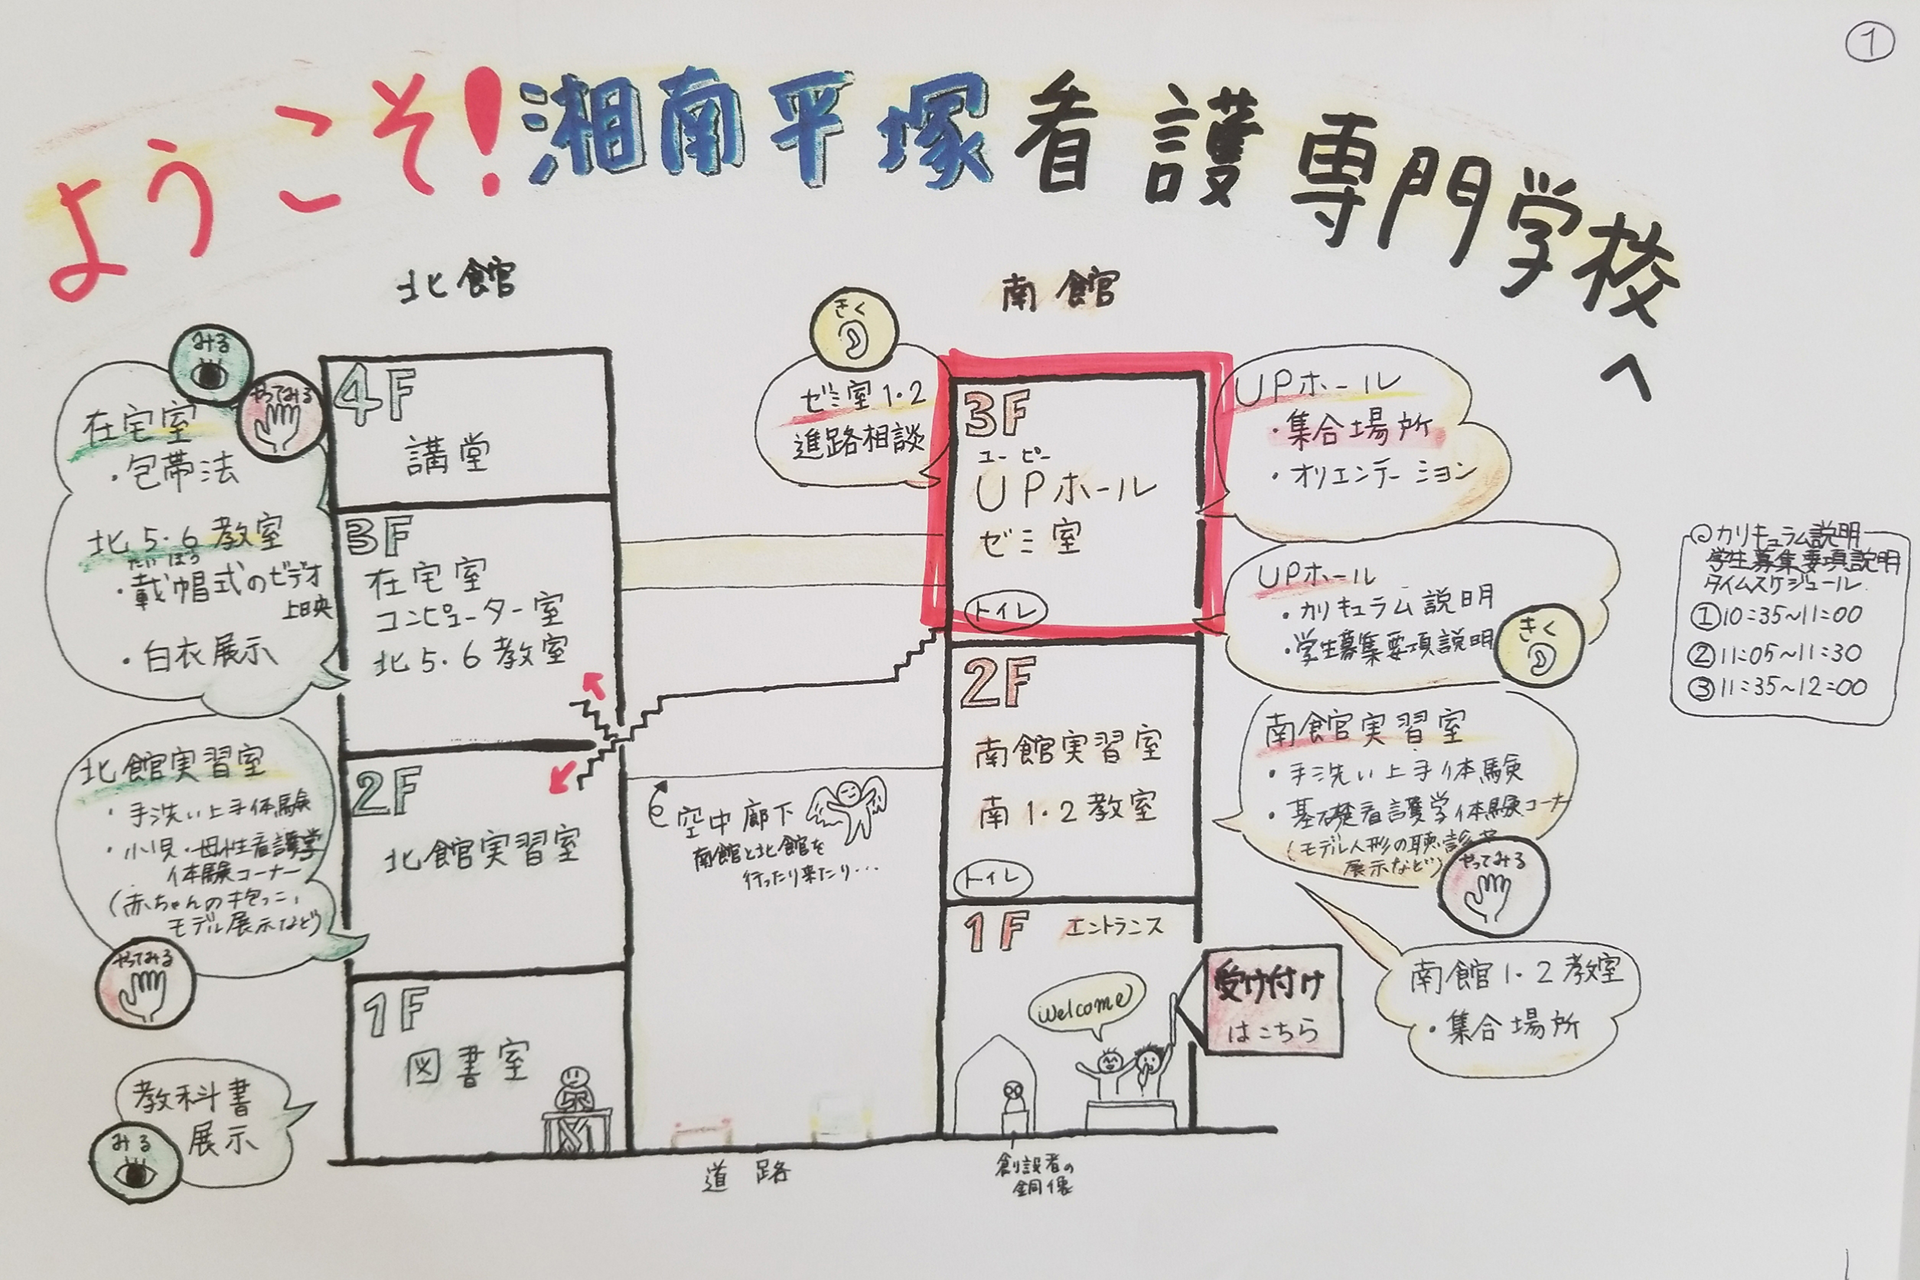 ①
ようこそ!湘南平塚看護専門学校へ
北館
南館
みる
やってみる
在宅室
・包帯法
北5・6教室
たいぼう
・戴帽式のビデオ
上映
・白衣展示
4F
講堂
3F
在宅室
コンピューター室
北5・6教室
北館実習室
・手洗い上手体験
・小児・母性看護学
体験コーナー
(赤ちゃんの抱っこ、
モデル展示など)
やってみる
2F
北館実習室
1F
図書室
教科書
展示
みる
きく
ゼミ室1・2
進路相談
3F
ユーピー
UPホール
ゼミ室
トイレ
UPホール
・集合場所
・オリエンテーション
UPホール
・カリキュラム説明
・学生募集要項説明
きく
◎カリキュラム説明
学生募集要項説明
タイムスケジュール
①10:35~11:00
②11:05~11:30
③11:35~12:00
2F
南館実習室
南1・2教室
トイレ
南館実習室
・手洗い上手体験
・基礎看護学体験コーナー
(モデル人形の聴診や
展示など)
やってみる
空中廊下
南館と北館を
行ったり来たり・・・
1F エントランス
welcome
受け付け
はこちら
南館1・2教室
・集合場所
道路
創設者の
銅像